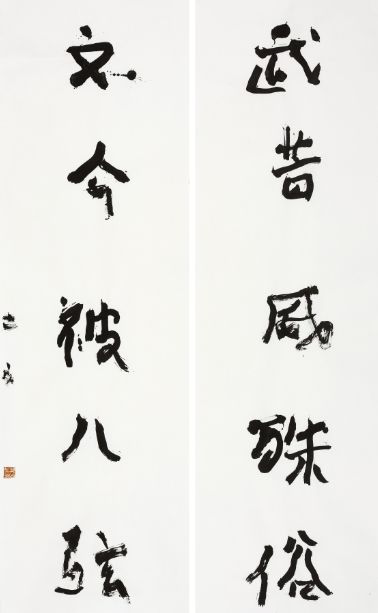 武昔威殊俗
文今被八弦